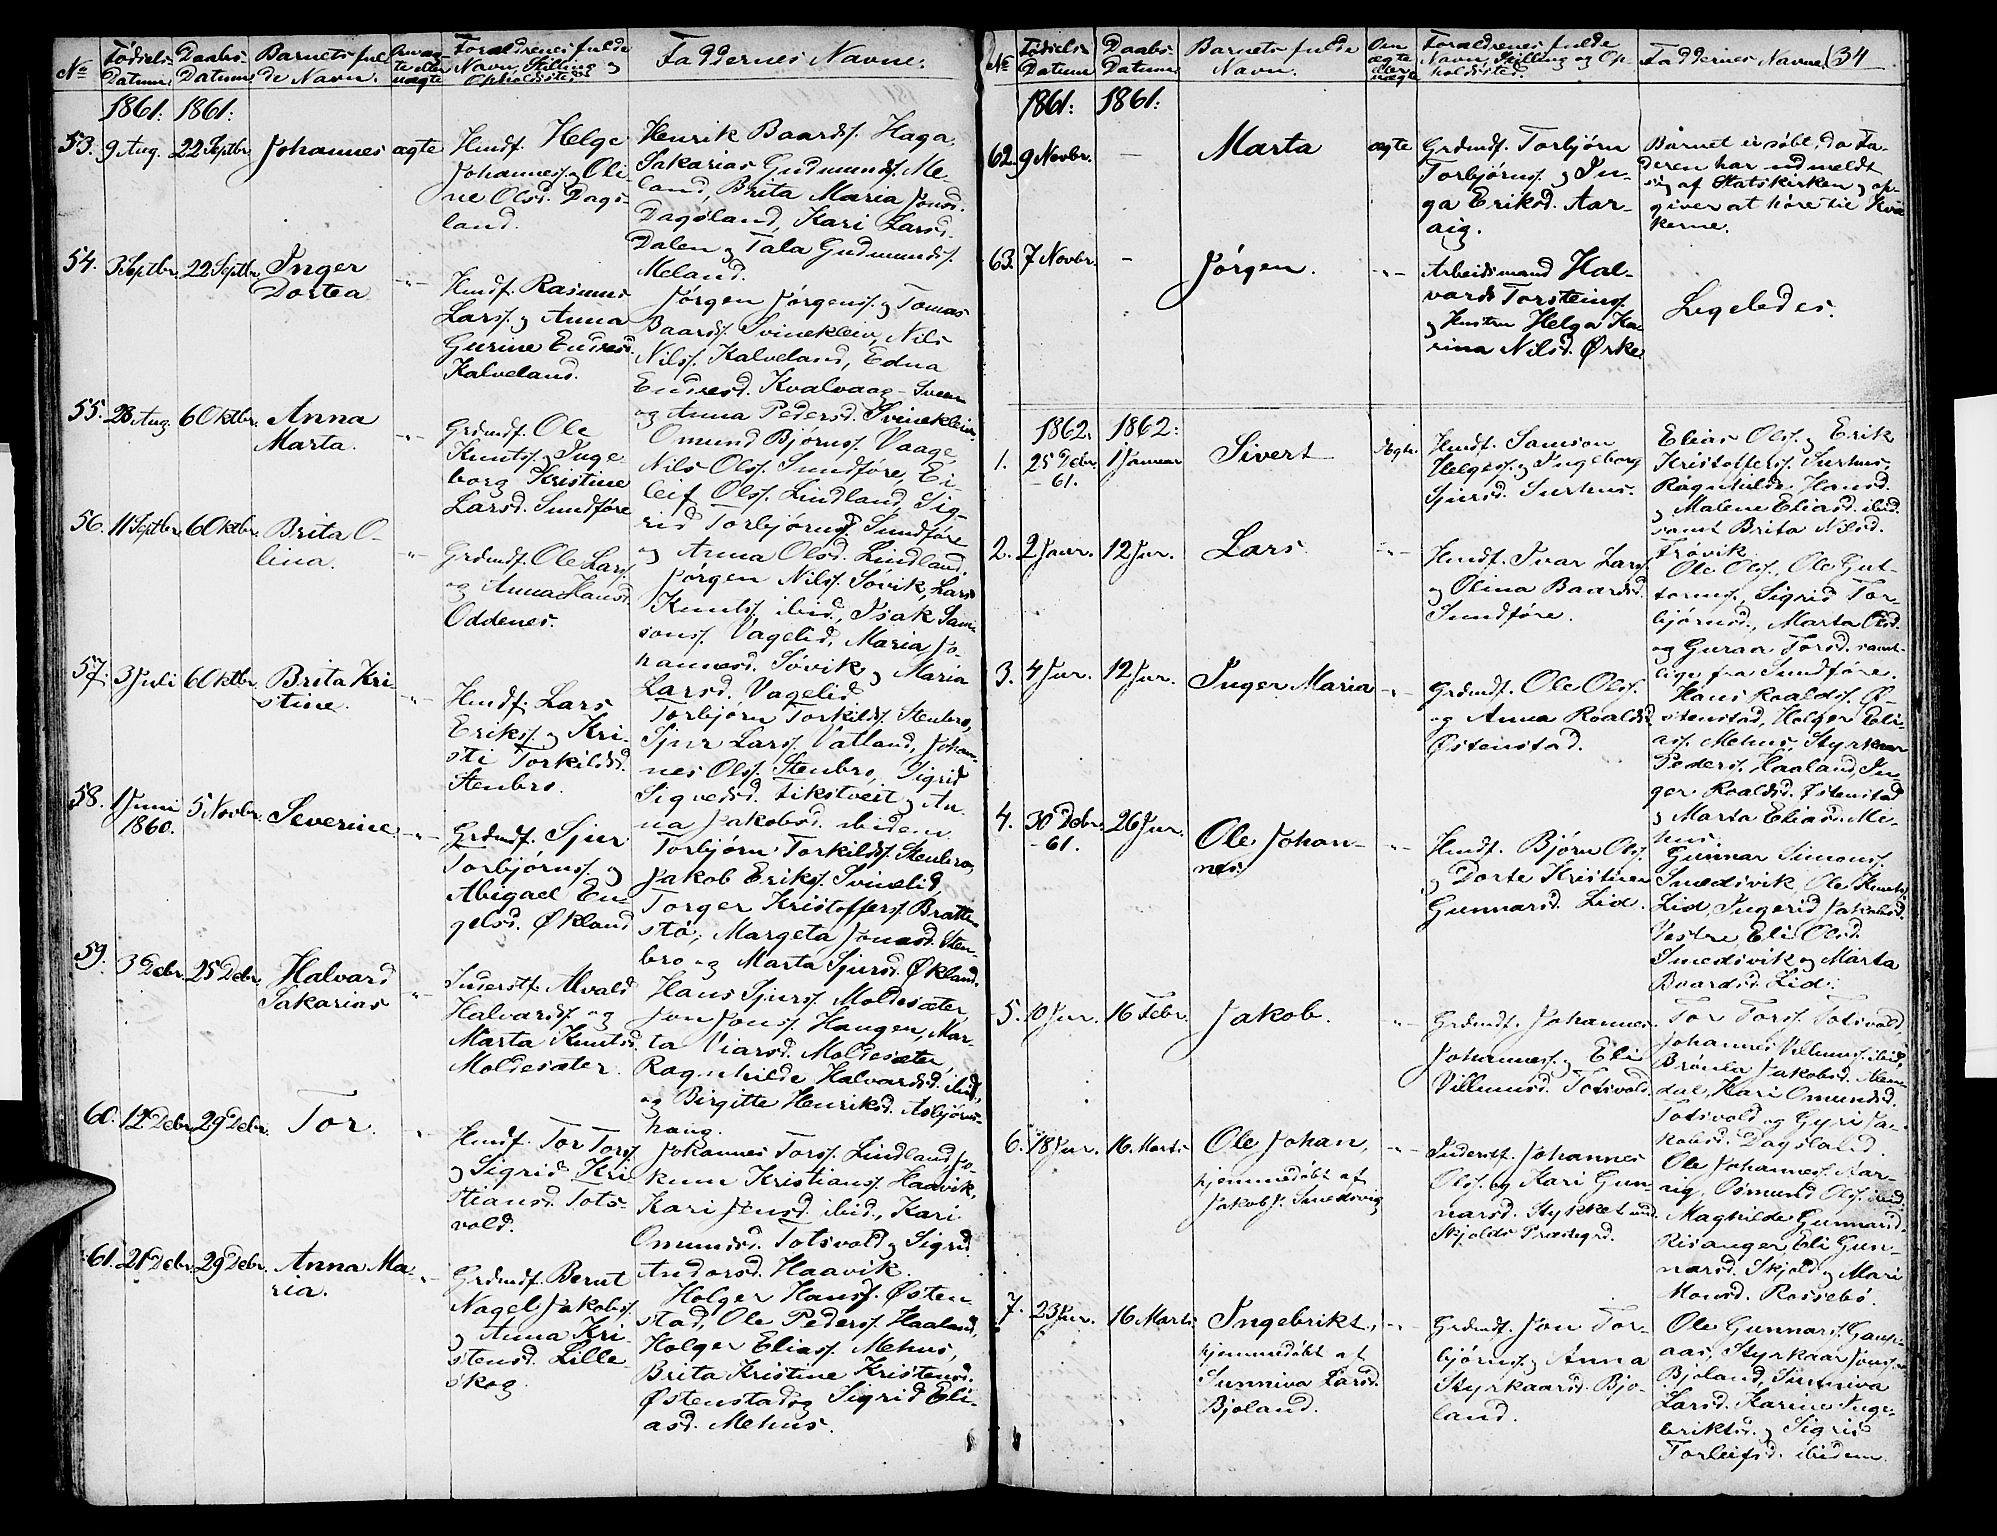 No
Fødsels Datum.
Daabs Datum
Barnets fulde Navn.
Om ægte eller uægte
Forældrenes fulde Navn, Stilling og Opholdssted
Faddernes Navne.
1861: 1861:
53. 9 Aug. 22 Septbr. Johannes ægte
Hmdf. Helge
Johanness. og Oli-
ne Olsd. Dags-
land.
Henrik Baards. Haga,
Sakarias Gudmunds. Me-
land, Brita Maria Jonsd.
Dagsland, Kari Larsd.
Dalen og Tala Gudmundsd.
Meland.
54. 3 Septbr. 22 Septbr. Inger
Dortea -"-
Hmdf. Rasmus
Larss. og Anna
Gurine Endresd.
Kalveland.
Jørgen Jørgenss. og Tomas
Baards. Svinekleiv, Nils
Nilss. Kalveland, Edna
Endresd. Kvalvaag - Sveen
og Anna Pedersd. Svinekleiv.
55. 28 Aug. 6 Oktbr. Anna
Marta. -"-
Grdmdf. Ole
Knuts. og Inge-
borg Kristine
Larsd. Sundføre
Omund Bjørns. Vaage,
Nils Olss. Sundføre, Ei-
leif Olss. Lindland, Sig-
rid Torbjørnsd. Sundføre
og Anna Olsd. Lindland.
56. 11 Septbr. 6 Oktbr. Brita O-
lina. -"-
Grdmdf. Ole Larss.
og Anna Hansd.
Oddenes.
Jørgen Nilss. Søvik, Lars
Knuts. ibid., Isak Sam-
sons. Vagelid, Maria Jo-
hannesd. Søvik og Maria
Larsd. Vagelid.
57. 3 Juli 6 Oktbr. Brita Kri-
stine. -"-
Hmdf. Lars
Eriks. og Kri-
sti Torkildsd.
Stenbro.
Torbjørn Torkilds. Stenbro,
Sjur Larss. Vatland, Johan-
nes Olss. Stenbro, Sigrid
Sigvedsd. Eikstveit og An-
na Jakobsd. ibidem
58. 1 Juni
1860. 5 Novbr. Severine -"-
Grdmdf. Sjur
Torbjørnss. og
Abigael En-
gelsd. Økland
Torbjørn Torkilds. Stenbro,
Jakob Eriks. Svinelid,
Torger Kristoffers. Bratten-
stø, Margeta Jonasd. Sten-
bro og Marta Sjursd. Økland.
59. 3 Debr. 25 Debr. Halvard
Sakarias -"-
Inderstf. Alvald
Halvards. og
Marta Knutsd.
Moldesæter.
Hans Sjurs. Moldesæter
Jon Jons. Haugen, Mar-
ta Viarsd. Moldesæter,
Ragnhilde Halvardsd. ibid,
og Birgitte Henriksd. Asbjørns-
haug.
60. 12 Debr. 29 Debr. Tor. -"-
Hmdf. Tor Torss.
og Sigrid Kri-
stiansd. Tots-
vold.
Johannes Torss. Lindland, Jo-
kum Kristians. Haavik,
Kari Jensd. ibid., Kari
Omundsd. Totsvold og Sigrid
Andorsd. Haavik.
61. 21 Debr. 29 Debr. Anna Ma-
ria. -"-
Grdmdf. Bernt
Nagel Jakobs.
og Anna Kri-
stensd. Lille-
skog
Holger Hansf. Østen-
stad, Ole Pederss. Haaland,
Holger Eliass. Mehus,
Brita Kristine Kristensd.
Østenstad og Sigrid Eli-
asd. Mehus.
No
Fødsels Datum
Daabs Datum
Barnets fulde Navn.
Om ægte eller uægte
Forældrenes fulde Navn, Stilling og Opholdssted.
Faddernes Navne.
34
1861: 1861:
62. 9 Novbr. - Marta ægte
Grdmdf. Torbjørn
Torbjørns. og In-
ga Eriksd. Aar-
aig.
Barnet er døbt, da Fa-
deren har udmeldt
sig af Statskirken og op-
giver at høre til Kvæ
kerne.
63. 7 Novbr. - Jørgen. -"-
Arbeidsmand Hal-
vard Torsteins.
og Hustru Helga Ka-
rina Nilsd. Ørke
Ligeledes.
1862. 1862:
1. 25 Debr.
-61. 1 Januar Sivert Ægte
Hmdf. Samson
Helgess. og Ingeborg
Sjursd. Surhus.
Elias Olss. og Erik
Kristofferss. Surhus,
Ragnhilde Hansd.
og Malene Eliasd. ibid.
samt Brita Nilsd.
Frøvik.
2. 2 Janr. 12 Jnr. Lars -"-
Hmdf. Ivar Larss.
og Olina Baardsd.
Sundføre.
Ole Olss., Ole Gut-
torms., Sigrid Tor-
bjørnsd., Marta Olsd.
og Guraa Torsd. samt-
lige fra Sundføre.
3. 4 Jnr. 12 Jnr. Inger Maria -"-
Grdmdf. Ole Olss.
og Anna Roaldsd.
Østenstad.
Hans Roaldss. Ø-
stenstad, Holger Eli-
ass. Mehus, Styrkaar
Pederss. Haaland, In-
ger Roaldsd. Østenstad
og Marta Eliasd. Me-
hus.
4. 30 Debr.
-61. 26 Jnr. Ole Johan-
nes: -"-
Hmdf. Bjørn Olss.
og Dorte Kristine
Gunnarsd. Lid.
Gunnar Simons.
Smedsvik, Ole Knuts.
Lid, Ingerid Jakobsd.
Vestre, Eli Olsd.
Smedsvik og Marta
Baardsd. Lid.
5. 10 Jnr. 16 Febr. Jakob. -"-
Grdmdf. Johannes
Johanness. og Eli
Villumsd. Totsvold.
Tor Torss. Totsvold,
Johannes Villumss. ibid,
Brønla Jakobsd.
dal, Kari Omundsd.
Totsvold og Gyri Ja-
kobsd. Dagsland.
6. 18 Jnr. 16 Marts Ole Johan,
hjemmedøbt af
Jakob J. Smedsvig -"-
Inderstf. Johannes
Olss. og Kari Gun-
narsd. Stykket und.
Skjolds Præstegrd.
Ole Johanness. Aar-
aig, Osmund Olss. ibid
Maghilde Gunnarsd.
Risanger, Eli Gun-
narsd. Skjold og Mari
Monsd. Rossebø.
7. 23 Jnr. 16 Marts Ingebrikt,
hjemmedøbt af
Sunniva Larsd.
Bjoland. -"-
Grdmdf. Jon Tor-
bjørns. og Anna
Styrkaarsd. Bjo-
land.
Ole Gunnars. Gaup-
aas, Styrkaar Jons.
Bjoland, Sunniva
Larsd. Karine Inge-
briktsd. og Sigrid
Torleifsd. ibidem.